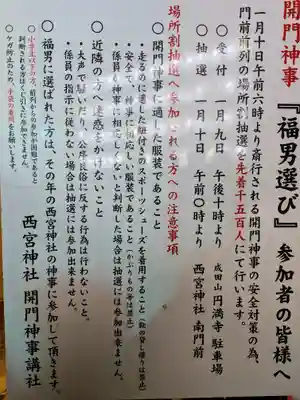 開門神事『福男選び』参加者の皆様へ
一月十日午前六時より斎行される開門神事の安全対策の為、
門前前列の場所割抽選を先着千五百人にて行います。
○受付 一月九日 午後十時より 成田山 円満寺 駐車場
○抽選 一月十日 午前〇時より 西宮神社 南門前
場所割抽選へ参加される方への注意事項
○開門神事に適した服装であること
・走るのに適した紐付きのスポーツシューズを着用すること(靴の貸し借りは禁止)
・安全で、神事に相応しい服装であること(かぶりもの等は禁止)
・係員が神事に相応しくないと判断した場合は抽選には参加出来ません。
○近隣の方へ迷惑をかけないこと
・大声で騒いだり、公序良俗に反する行為は行わないこと。
・係員の指示に従わない場合は抽選には参加出来ません。
○福男に選ばれた方は、その年の西宮神社の神事に参加して頂きます。
西宮神社 開門神事講社
○小学生以下の方、前列からの参加が困難であると
判断される方はくじ引きに参加できません。
○ケガ防止のため、手袋の着用をお願いします。